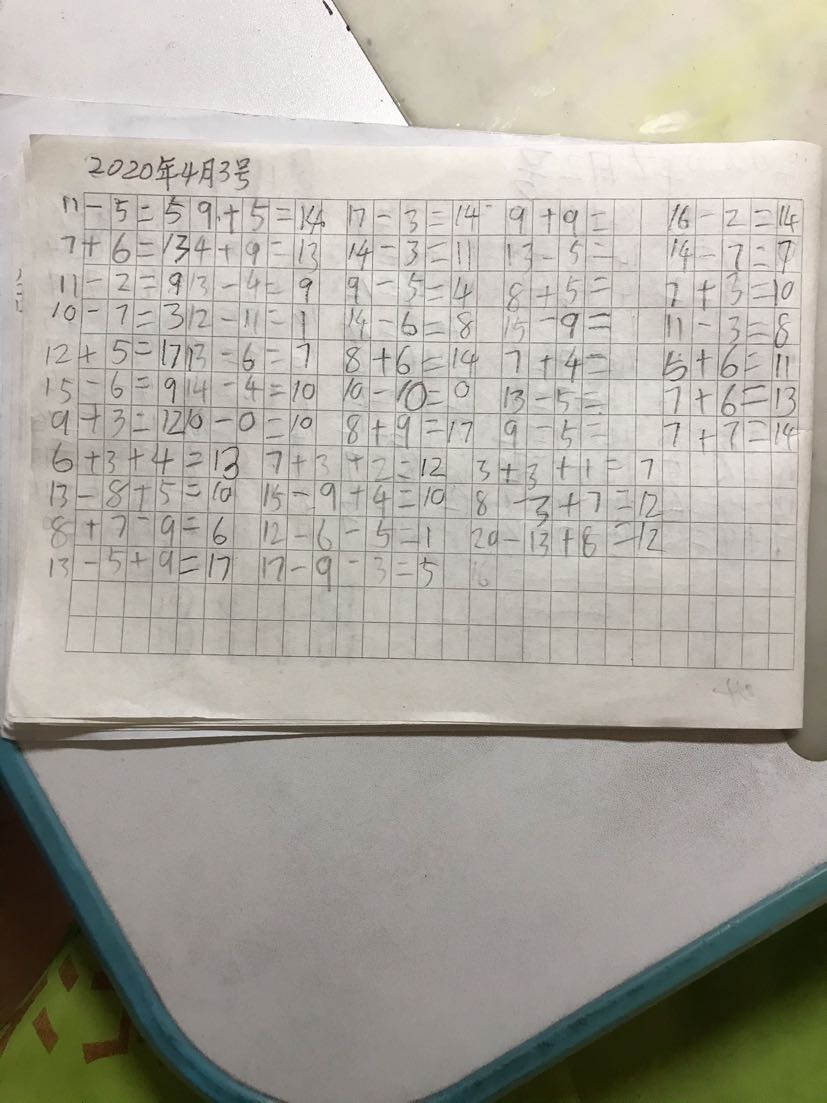 2020年4月3号
11-5=5 9+5=14 17-3=14 9+9= 16-2=14
7+6=13 4+9=13 14-3=11 13-5= 14-7=7
11-2=9 13-4=9 9-5=4 8+5= 7+3=10
10-7=3 12-11=1 14-6=8 15-9= 11-3=8
12+5=17 13-6=7 8+6=14 7+4= 5+6=11
15-6=9 14-4=10 10-10=0 13-5= 7+6=13
9+3=12 10-0=10 8+9=17 9-5= 7+7=14
6+3+4=13 7+3+2=12 3+3+1=7
13-8+5=10 15-9+4=10 8-3+7=12
8+7-9=6 12-6-5=1 20-13+8=12
13-5+9=17 17-9-3=5 16